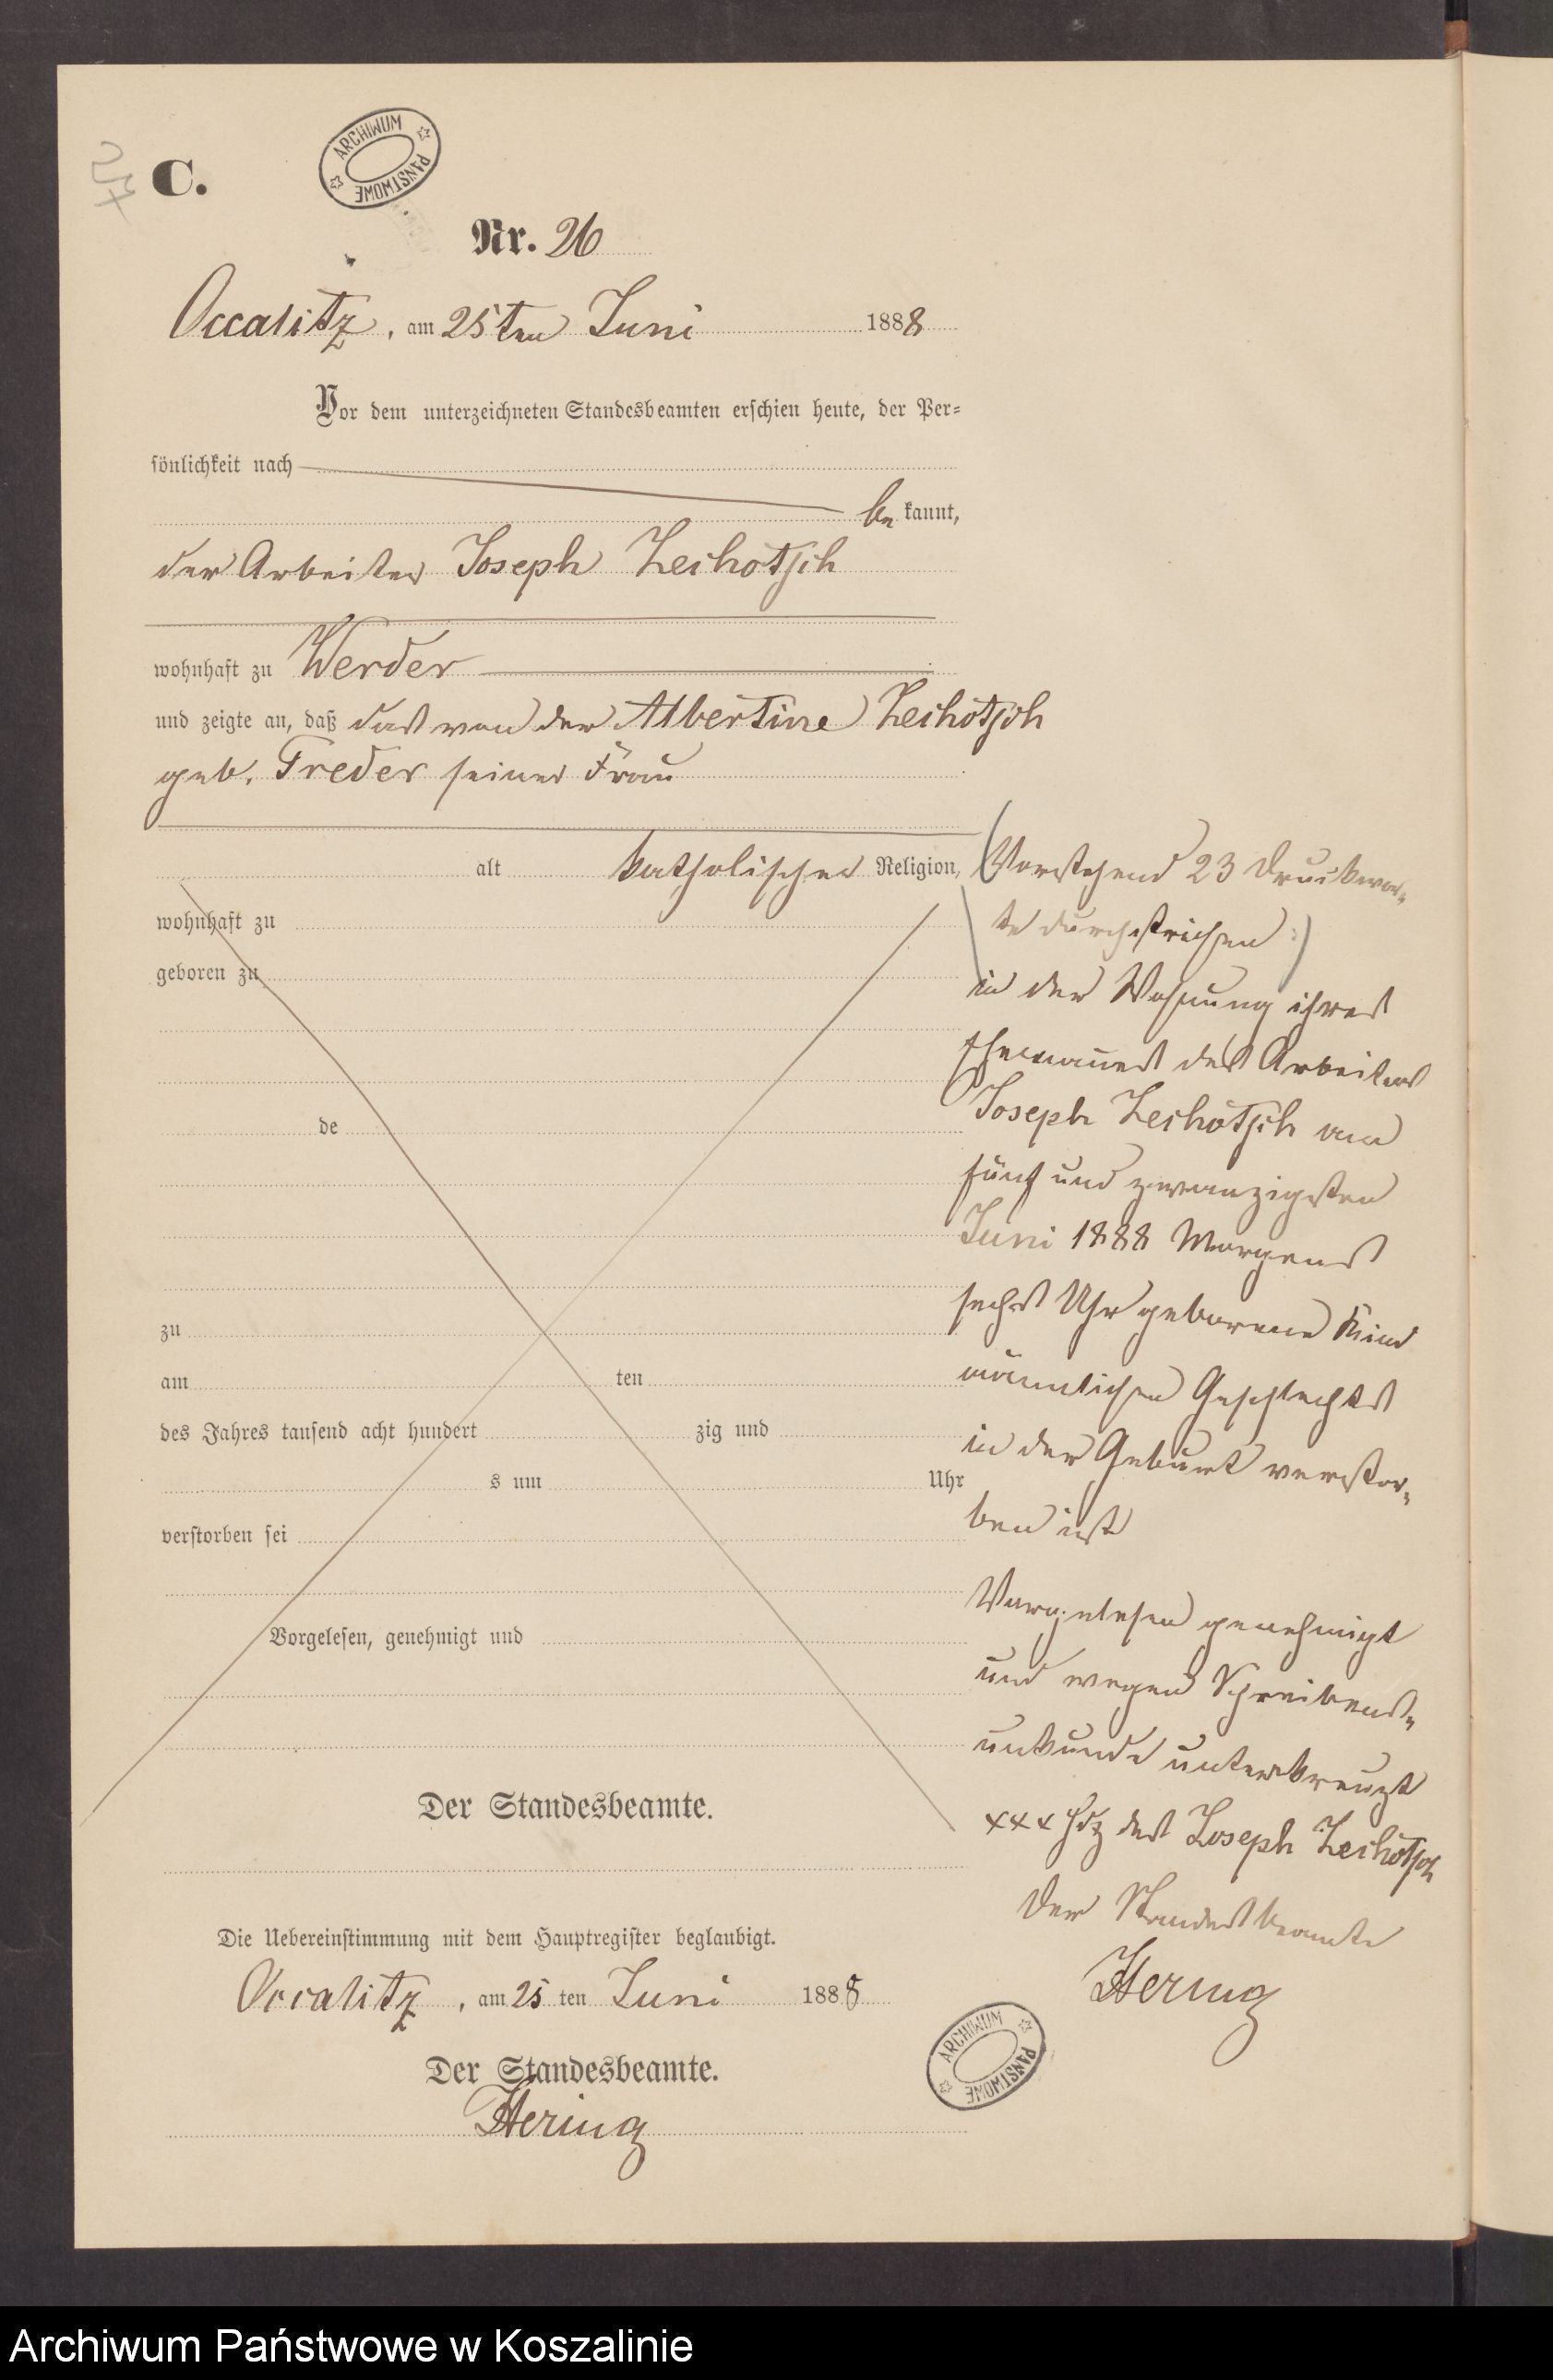 C.
ARCHIWUM PAŃSTWOWE
Nr. 26
Occalitz, am 25ten Juni 1888
Vor dem unterzeichneten Standesbeamten erschien heute, der Per=
sönlichkeit nach
be kannt,
der Arbeiter Joseph Zeihotsch
wohnhaft zu Werder
und zeigte an, daß das von der Albertine Zeihotsch
geb. Treder seiner Frau
alt katholischer Religion,
wohnhaft zu
geboren zu
de
zu
am ten
des Jahres tausend acht hundert zig und
s um Uhr
verstorben sei
Vorgelesen, genehmigt und
Der Standesbeamte.
(Vorstehend 23 Druckwor-
te durchstrichen:)
in der Wohnung ihres
Ehemannes des Arbeiters
Joseph Zeihotsch am
fünf und zwanzigsten
Juni 1888 Morgens
sechs Uhr geborene Kind
männlichen Geschlechts
in der Geburt verstor-
ben ist
Vorgelesen genehmigt
und wegen Schreibens-
unkunde unterkreuzt
xxx Hdz des Joseph Zeihotsch
Der Standesbeamte
Hering
Die Uebereinstimmung mit dem Hauptregister beglaubigt.
Occalitz, am 25 ten Juni 1888
Der Standesbeamte.
Hering
ARCHIWUM PAŃSTWOWE
Archiwum Państwowe w Koszalinie